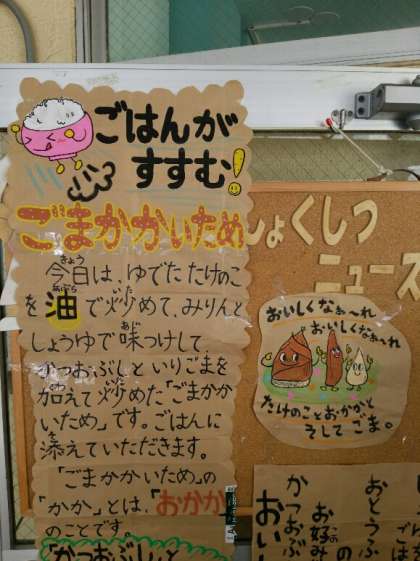 ごはんが
すすむ!
ごまかかいため
今日は、ゆでたたけのこ
を油で炒めて、みりんと
しょうゆで味つけして、
かつおぶしといりごまを
加えて炒めた「ごまかか
いため」です。ごはんに
添えていただきます。
「ごまかかいため」の
「かか」とは、「おかか」
のことです
「かつおぶし」と
しょくしつ
ニュース
おいしくなぁ〜れ
おいしくなぁ〜れ
たけのことおかかと
そしてごま。
おとうふ
かつおぶ
お好み
おい